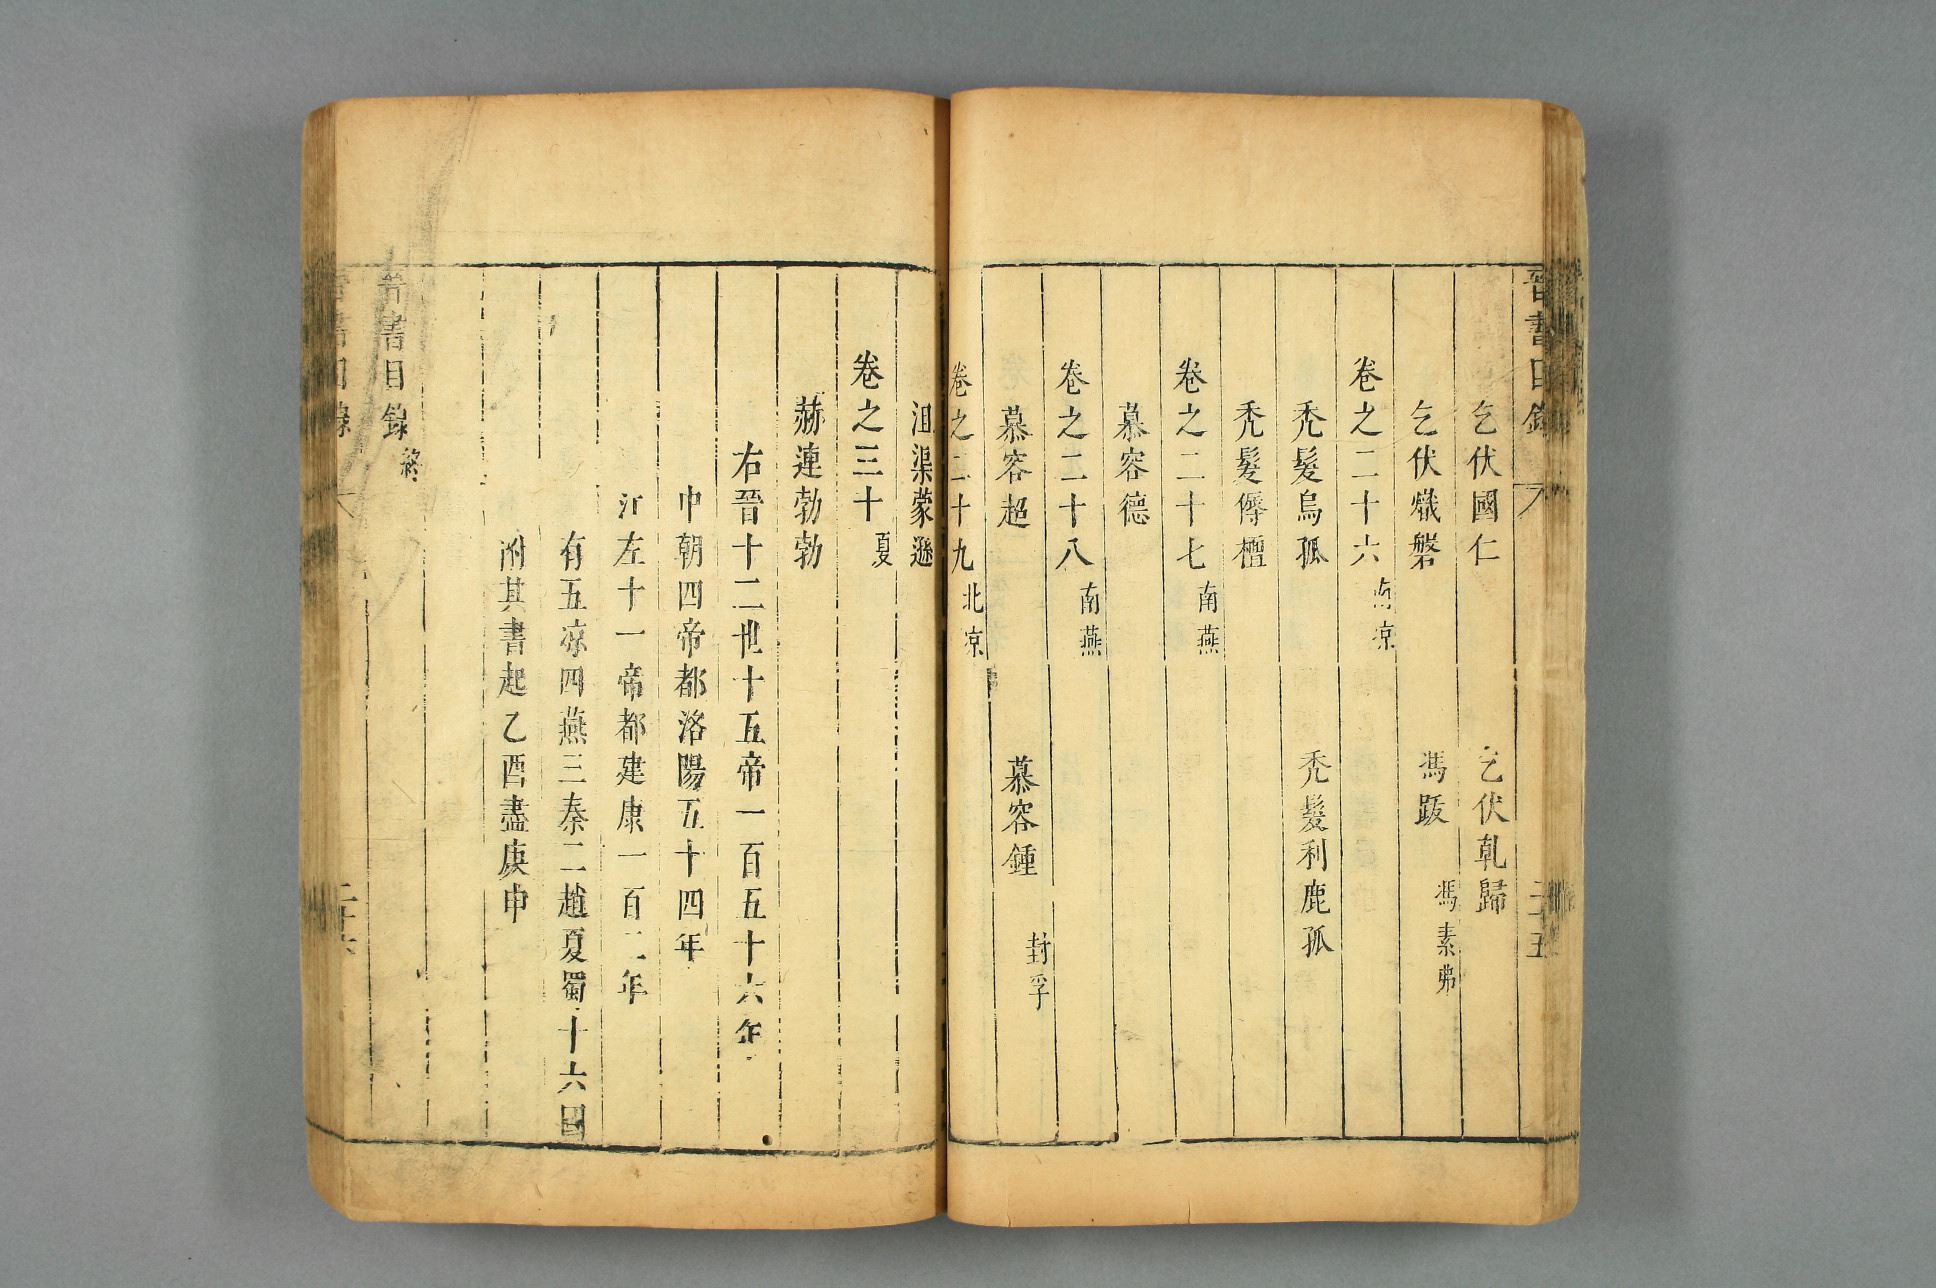 晉書目錄 二十五
乞伏國仁 乞伏乹歸
乞伏熾磐 馮跋 馮素弗
卷之二十六 南凉
禿髮烏孤 禿髮利鹿孤
禿髮傉檀
卷之二十七 南燕
慕容德
卷之二十八 南燕
慕容超 慕容鍾 封孚
卷之二十九 北凉
沮渠蒙遜
卷之三十 夏
赫連勃勃
右晉十二世十五帝一百五十六年
中朝四帝都洛陽五十四年
江左十一帝都建康一百二年
有五凉四燕三秦二趙夏蜀十六國
附其書起乙酉盡庚申
晉書目錄 終